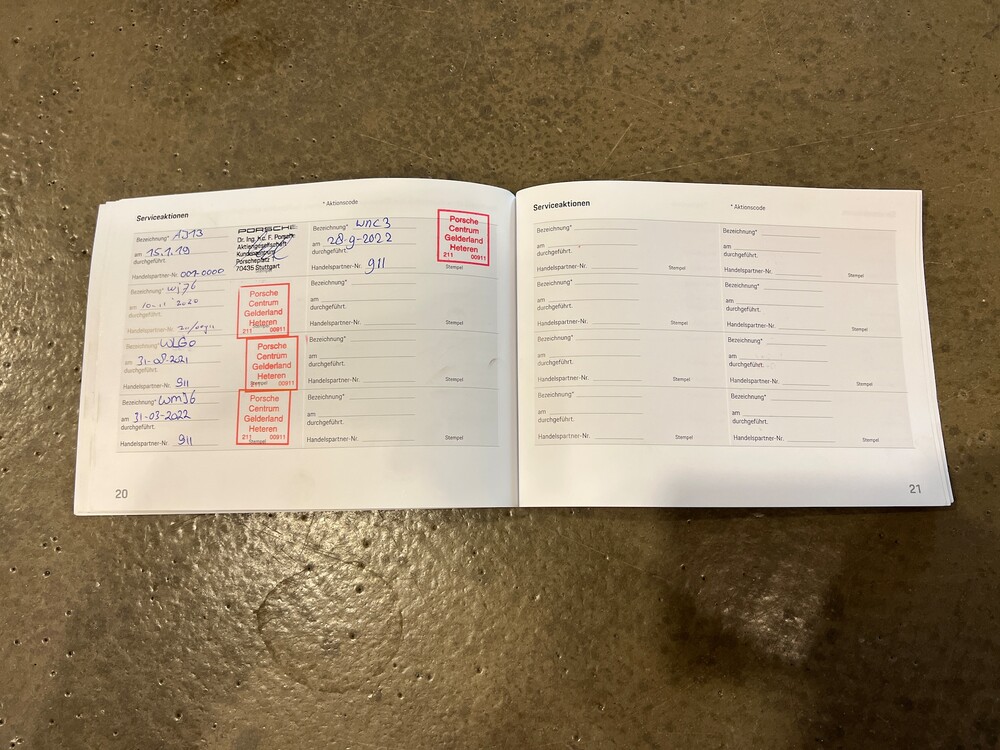 Serviceaktionen
* Aktionscode
Bezeichnung* AJ13
am 15.1.19
durchgeführt.
Handelspartner-Nr. 001-0000
PORSCHE
Dr. Ing. h.c. F. Porsche
Aktiengesellschaft
Porscheplatz 1
70435 Stuttgart
Bezeichnung* WJ76
am 10-11 2020
durchgeführt.
Handelspartner-Nr.
Porsche
Centrum
Gelderland
Heteren
211 00911
Stempel
Bezeichnung* WLG0
am 31-08-2021
durchgeführt.
Handelspartner-Nr. 911
Porsche
Centrum
Gelderland
Heteren
Stempel 00911
Bezeichnung* WMJ6
am 31-03-2022
durchgeführt.
Handelspartner-Nr. 911
Porsche
Centrum
Gelderland
Heteren
211 00911
Stempel
Bezeichnung* WNC3
am 28-9-2022
durchgeführt.
Handelspartner-Nr. 911
Porsche
Centrum
Gelderland
Heteren
211 00911
Stempel
Bezeichnung*
am
durchgeführt.
Handelspartner-Nr. Stempel
Bezeichnung*
am
durchgeführt.
Handelspartner-Nr. Stempel
Bezeichnung*
am
durchgeführt.
Handelspartner-Nr. Stempel
20
Serviceaktionen
* Aktionscode
Bezeichnung*
am
durchgeführt.
Handelspartner-Nr. Stempel
Bezeichnung*
am
durchgeführt.
Handelspartner-Nr. Stempel
Bezeichnung*
am
durchgeführt.
Handelspartner-Nr. Stempel
Bezeichnung*
am
durchgeführt.
Handelspartner-Nr. Stempel
Bezeichnung*
am
durchgeführt.
Handelspartner-Nr. Stempel
Bezeichnung*
am
durchgeführt.
Handelspartner-Nr. Stempel
Bezeichnung*
am
durchgeführt.
Handelspartner-Nr. Stempel
Bezeichnung*
am
durchgeführt.
Handelspartner-Nr. Stempel
21